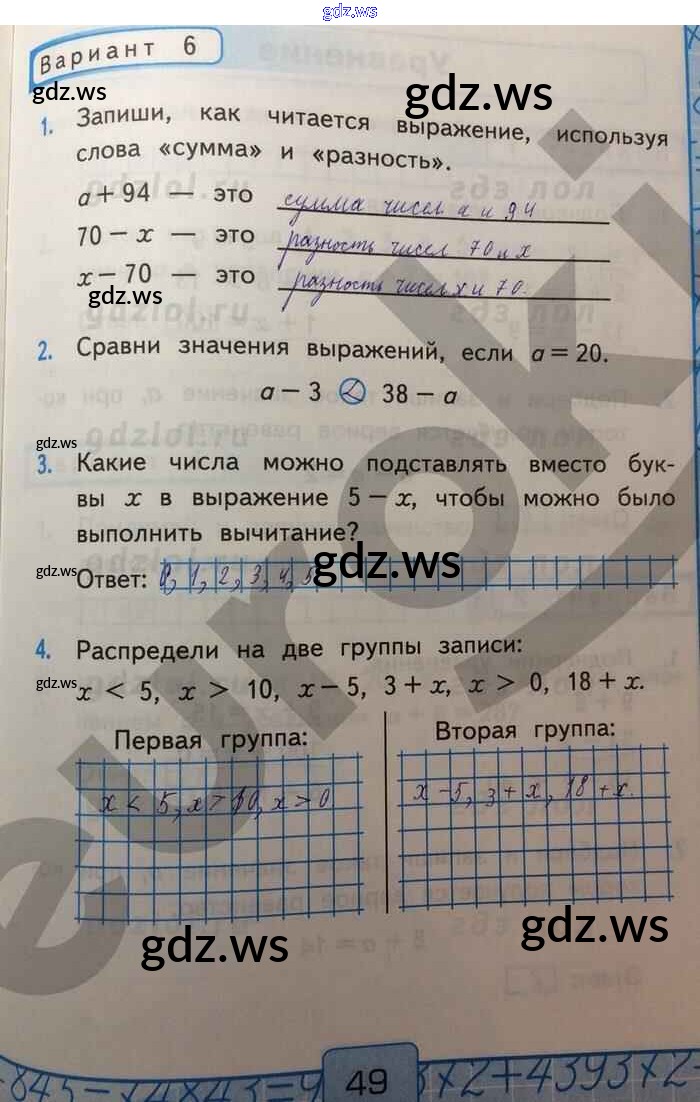 gdz.ws
Вариант 6
gdz.ws
gdz.ws
1. Запиши, как читается выражение, используя
слова «сумма» и «разность».
a + 94 — это сумма чисел a и 94
70 − x — это разность чисел 70 и x
x − 70 — это разность чисел x и 70.
gdz.ws
2. Сравни значения выражений, если a = 20.
a − 3 < 38 − a
gdz.ws
3. Какие числа можно подставлять вместо бук-
вы x в выражение 5 − x, чтобы можно было
выполнить вычитание?
gdz.ws
Ответ: 0, 1, 2, 3, 4, 5
gdz.ws
4. Распредели на две группы записи:
gdz.ws
x < 5, x > 10, x − 5, 3 + x, x > 0, 18 + x.
Первая группа: Вторая группа:
x < 5, x > 10, x > 0 x − 5, 3 + x, 18 + x.
gdz.ws
gdz.ws
8 + a = 14
euroki
49
845−14×43=9 3×2+4393×2−